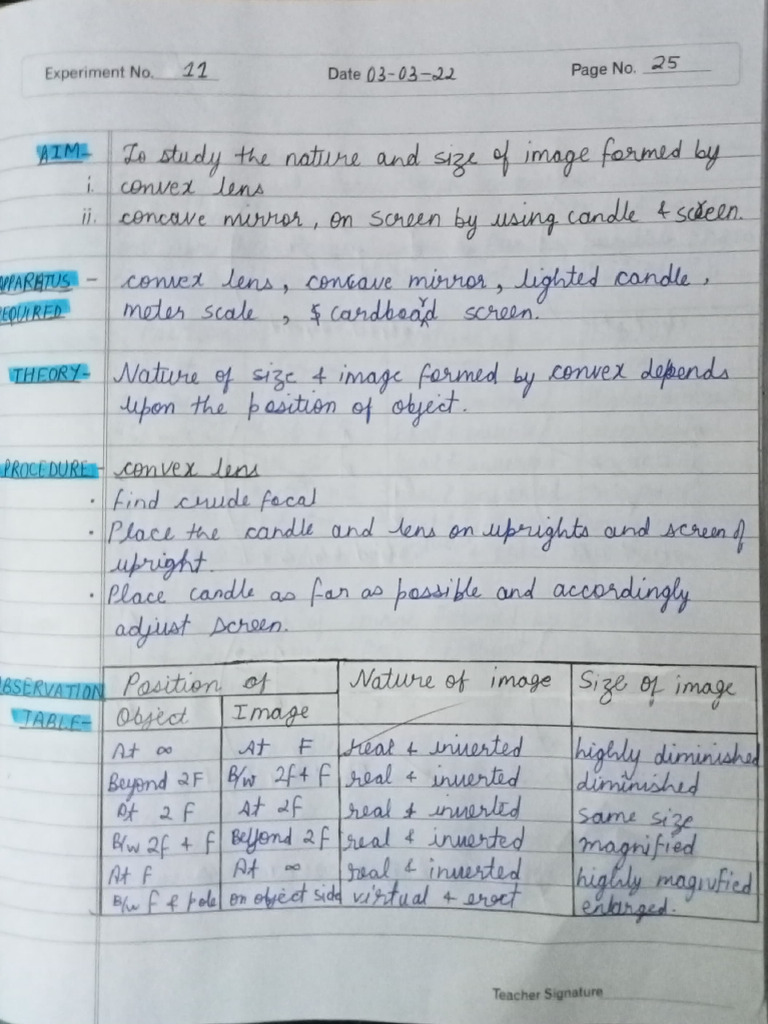 Experiment No. 11 Date 03-03-22 Page No. 25
AIM- To study the nature and size of image formed by
i. convex lens
ii. concave mirror, on screen by using candle & screen.
APPARATUS - convex lens, concave mirror, lighted candle,
EQUIRED meter scale, & cardboard screen.
THEORY- Nature of size & image formed by convex depends
upon the position of object.
PROCEDURE- convex lens
• Find crude focal
• Place the candle and lens on uprights and screen of
upright.
• Place candle as far as possible and accordingly
adjust screen.
BSERVATION Position of Nature of image Size of image
TABLE- Object Image
At ∞ At F real & inverted highly diminished
Beyond 2F B/w 2f & f real & inverted diminished
At 2F At 2f real & inverted same size
B/w 2f & f Beyond 2f real & inverted magnified
At f At ∞ real & inverted highly magnified
B/w f & pole on object side virtual & erect enlarged.
Teacher Signature